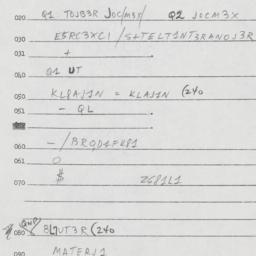 020 Q1 TOJB3R JOC/M3P/ Q2 JOCM3X
030 E5RC3XCI / S4TELT1NT3RANOJ3R
031 +
040 Q1 UT
050 KL8AJ1N = KLAJ1N (240
051 - QL
060 - / BRQD1FK81
061 O
070 $ Z681L1
080 BLJUT3R (240
090 MATERJ1